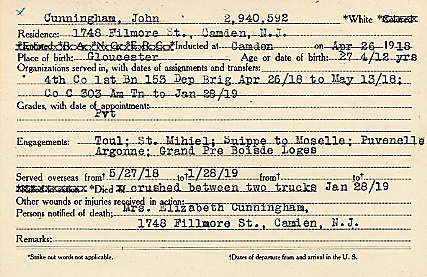 Cunningham, John 2,940,592 *White *Colored
Residence: 1748 Filmore St., Camden, N.J.
*Inducted at Camden on Apr 26 1918
Place of birth: Gloucester Age or date of birth: 27 4/12 yrs
Organizations served in, with dates of assignments and transfers:
4th Co 1st Bn 153 Dep Brig Apr 26/18 to May 13/18;
Co C 303 Am Tn to Jan 28/19
Grades, with date of appointment:
Pvt
Engagements: Toul; St. Mihiel; Snippe to Moselle; Puvenelle
Argonne; Grand Pre Boisde Loges
Served overseas from† 5/27/18 to† 1/28/19 from† to†
*Died crushed between two trucks Jan 28/19
Other wounds or injuries received in action:
Persons notified of death: Mrs. Elizabeth Cunningham,
1748 Fillmore St., Camden, N.J.
Remarks:
*Strike out words not applicable. †Dates of departure from and arrival in the U. S.